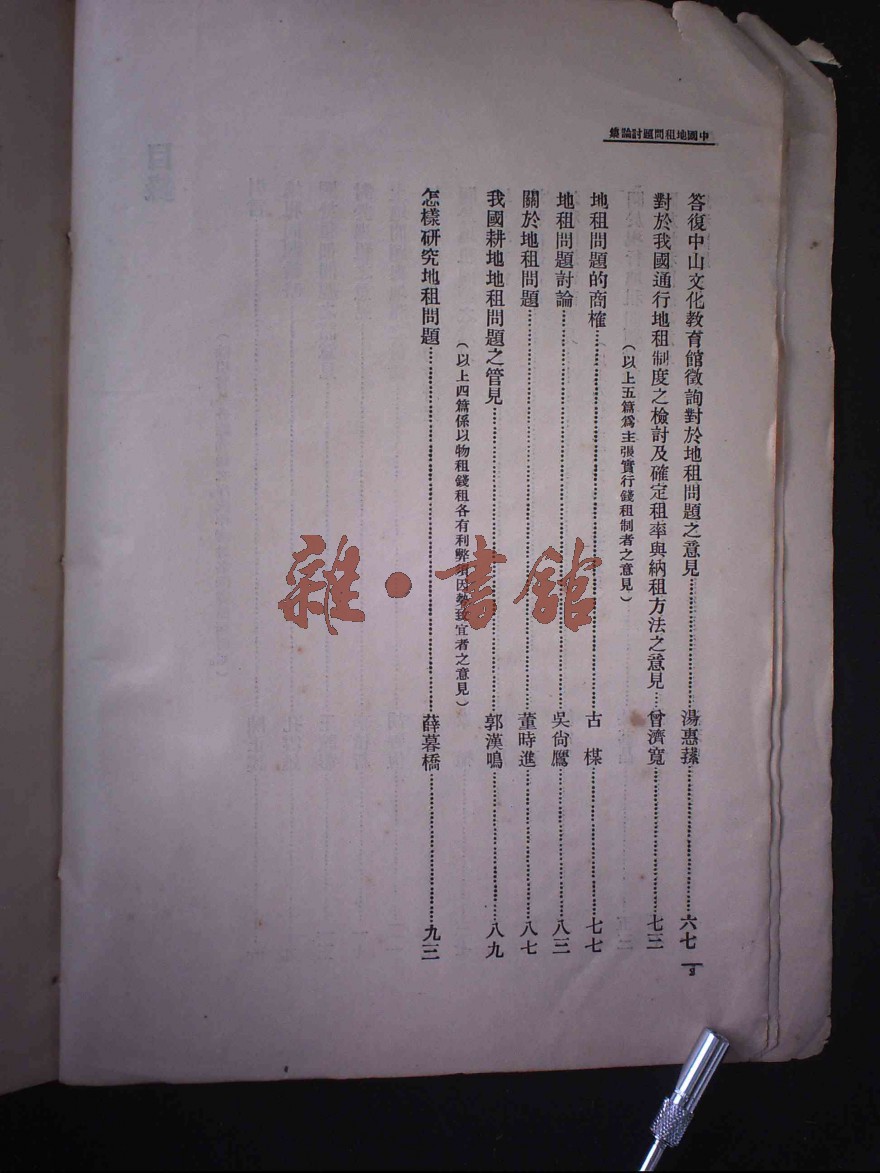 中國地租問題討論集
答復中山文化教育館徵詢對於地租問題之意見……湯惠蓀……六七
對於我國通行地租制度之檢討及確定租率與納租方法之意見……曾濟寬……七三
(以上五篇爲主張實行錢租制者之意見)
地租問題的商榷……古楳……七七
地租問題討論……吳尙鷹……八三
關於地租問題……董時進……八七
我國耕地地租問題之管見……郭漢鳴……八九
(以上四篇係以物租錢租各有利弊須因勢致宜者之意見)
怎樣研究地租問題……薛暮橋……九三
2
雜·書館
目錄